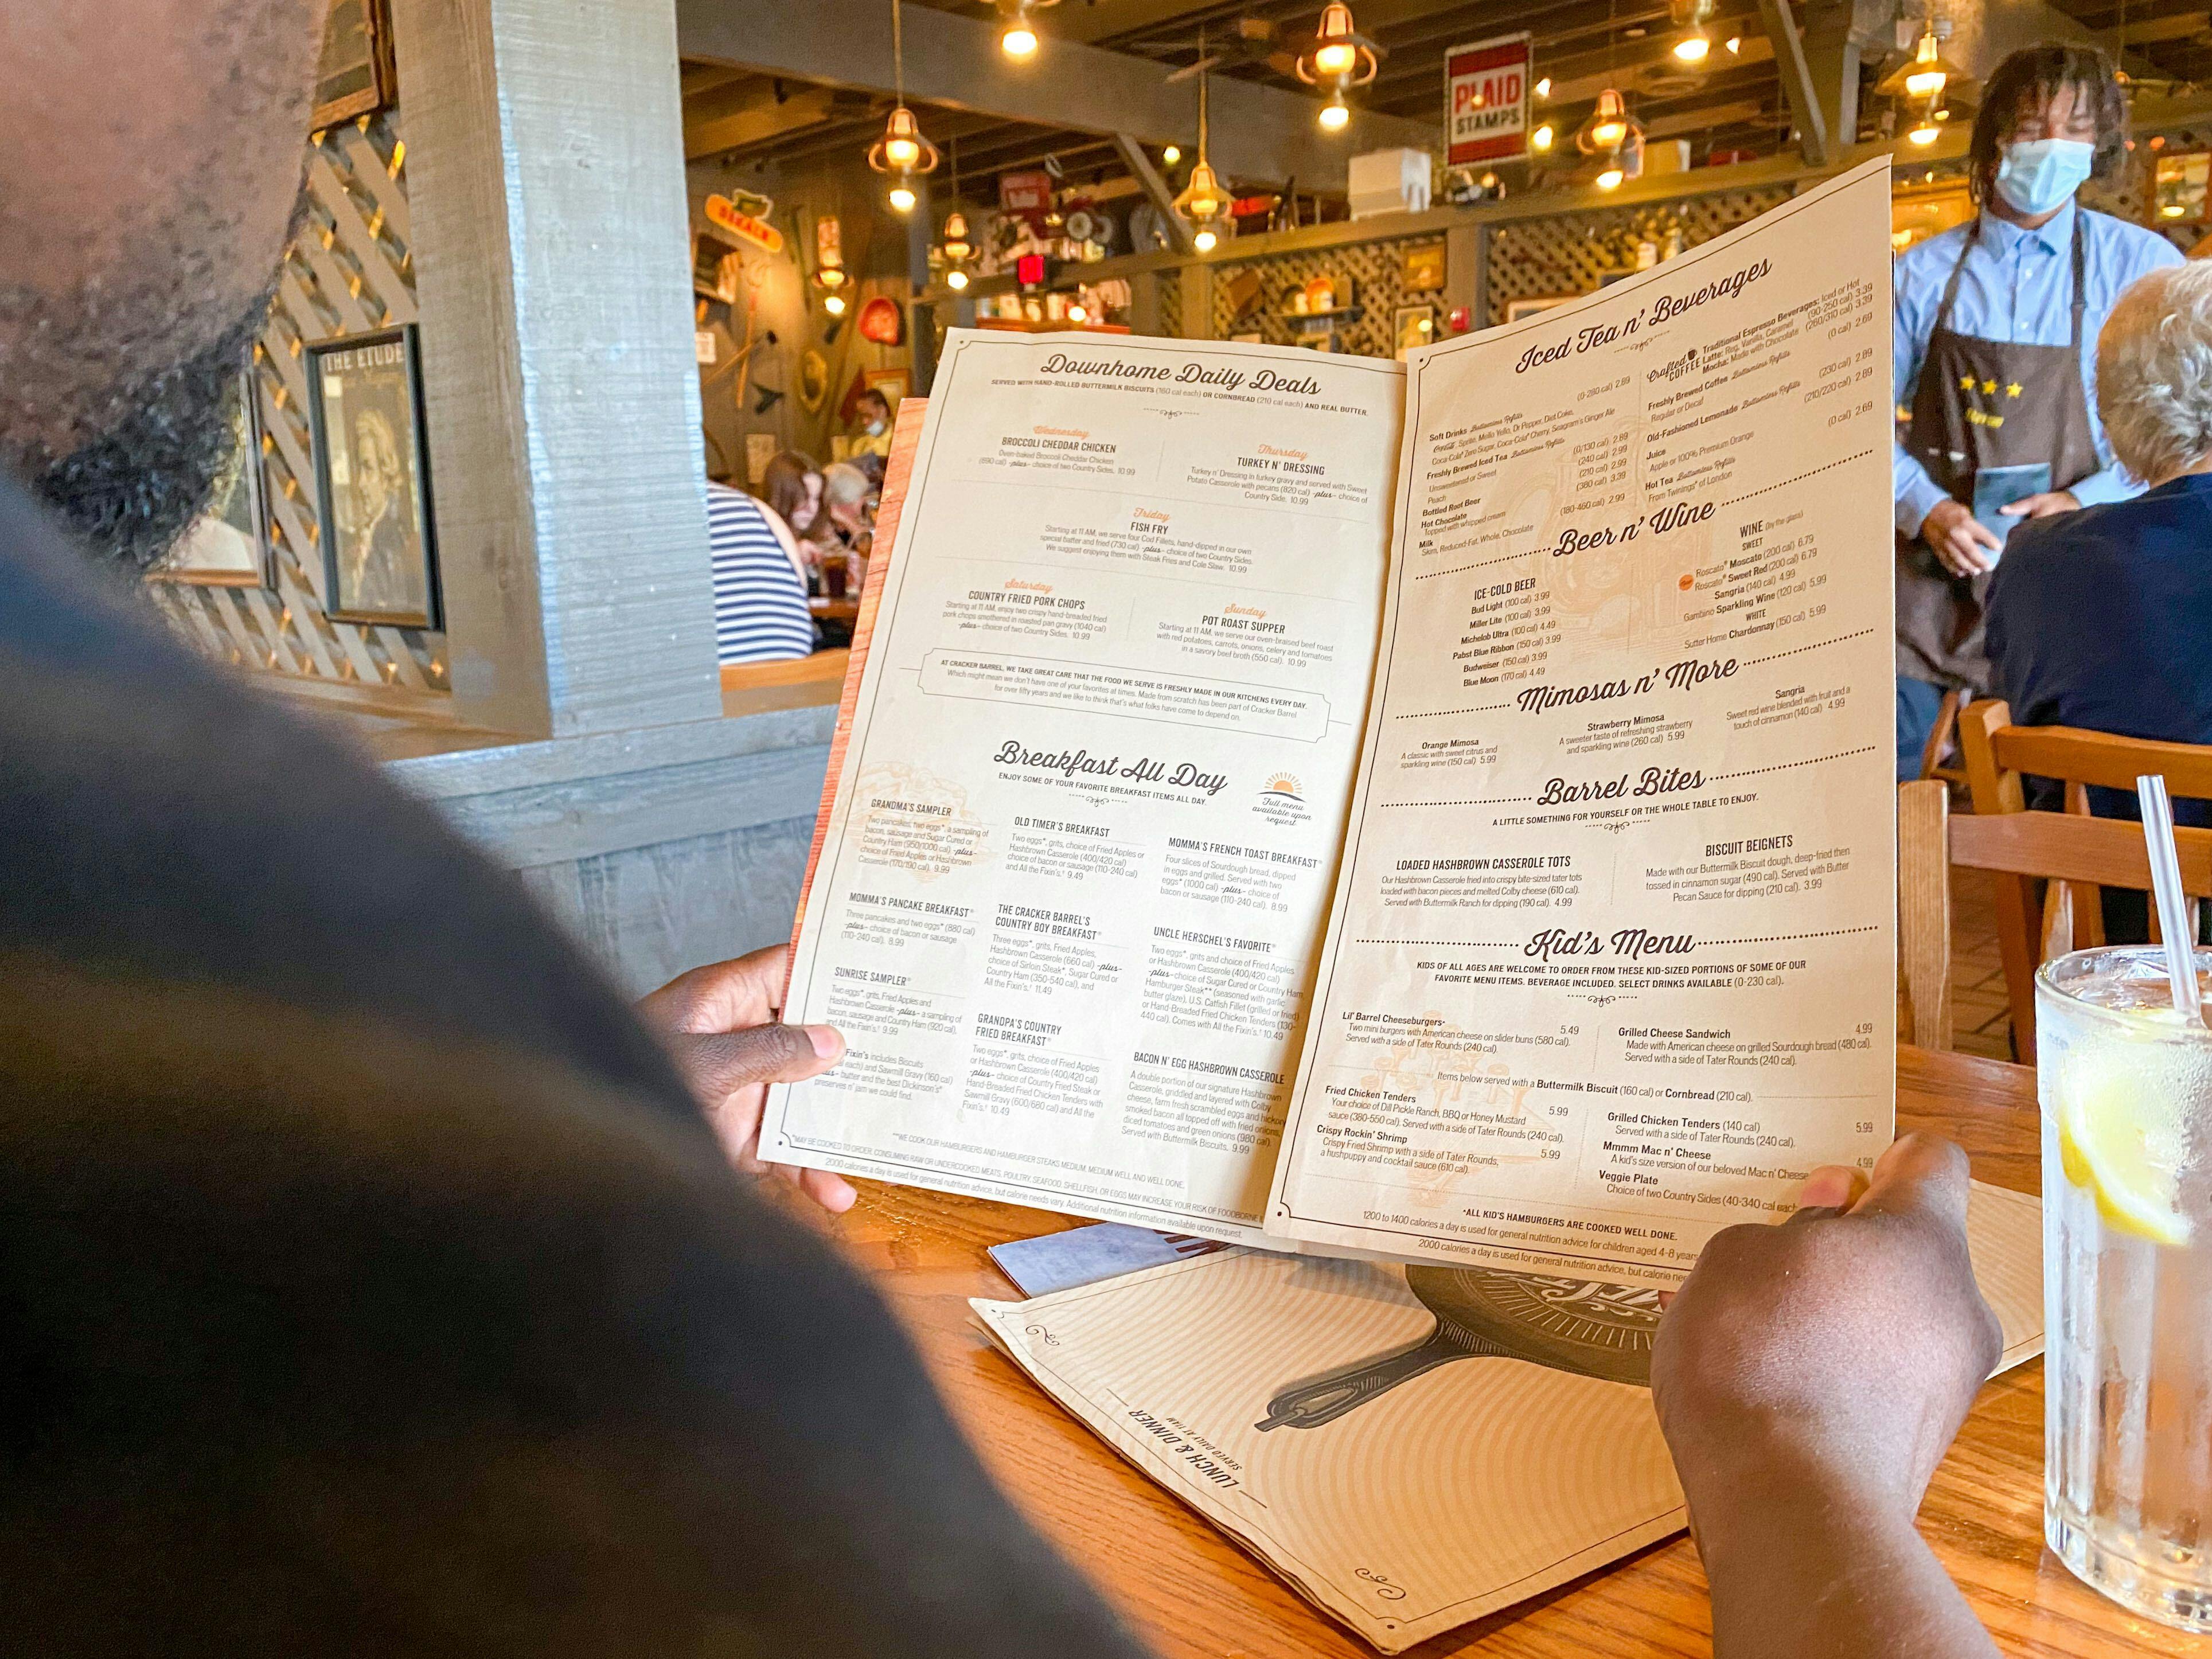 PLAID
STAMPS
THE ETUDE
Downhome Daily Deals
SERVED WITH HAND-ROLLED BUTTERMILK BISCUITS (160 cal each) OR CORNBREAD (210 cal each) AND REAL BUTTER.
Wednesday
BROCCOLI CHEDDAR CHICKEN
Oven-baked Broccoli Cheddar Chicken
(690 cal) -plus- choice of two Country Sides. 10.99
Thursday
TURKEY N' DRESSING
Turkey n' Dressing in turkey gravy and served with Sweet
Potato Casserole with pecans (820 cal) -plus- choice of
Country Side. 10.99
Friday
FISH FRY
Starting at 11 AM, we serve four Cod Fillets, hand-dipped in our own
special batter and fried (730 cal) -plus- choice of two Country Sides.
We suggest enjoying them with Steak Fries and Cole Slaw. 10.99
Saturday
COUNTRY FRIED PORK CHOPS
Starting at 11 AM, enjoy two crispy hand-breaded fried
pork chops smothered in roasted pan gravy (1040 cal)
-plus- choice of two Country Sides. 10.99
Sunday
POT ROAST SUPPER
Starting at 11 AM, we serve our oven-braised beef roast
with red potatoes, carrots, onions, celery and tomatoes
in a savory beef broth (550 cal). 10.99
AT CRACKER BARREL, WE TAKE GREAT CARE THAT THE FOOD WE SERVE IS FRESHLY MADE IN OUR KITCHENS EVERY DAY.
Which might mean we don't have one of your favorites at times. Made from scratch has been part of Cracker Barrel
for over fifty years and we like to think that's what folks have come to depend on.
Breakfast All Day
ENJOY SOME OF YOUR FAVORITE BREAKFAST ITEMS ALL DAY.
Full menu
available upon
request.
GRANDMA'S SAMPLER
Two pancakes, two eggs*, a sampling of
bacon, sausage and Sugar Cured or
Country Ham (950/1000 cal) -plus-
choice of Fried Apples or Hashbrown
Casserole (170/190 cal). 9.99
MOMMA'S PANCAKE BREAKFAST®
Three pancakes and two eggs* (880 cal)
-plus- choice of bacon or sausage
(110-240 cal). 8.99
SUNRISE SAMPLER®
Two eggs*, grits, Fried Apples and
Hashbrown Casserole -plus- a sampling of
bacon, sausage and Country Ham (920 cal),
and All the Fixin's.† 9.99
Fixin's includes Biscuits
each) and Sawmill Gravy (160 cal)
butter and the best Dickinson's®
preserves n' jam we could find.
OLD TIMER'S BREAKFAST
Two eggs*, grits, choice of Fried Apples or
Hashbrown Casserole (400/420 cal)
choice of bacon or sausage (110-240 cal)
and All the Fixin's.† 9.49
THE CRACKER BARREL'S
COUNTRY BOY BREAKFAST®
Three eggs*, grits, Fried Apples,
Hashbrown Casserole (660 cal) -plus-
choice of Sirloin Steak*, Sugar Cured or
Country Ham (350-540 cal), and
All the Fixin's.† 11.49
GRANDPA'S COUNTRY
FRIED BREAKFAST®
Two eggs*, grits, choice of Fried Apples
or Hashbrown Casserole (400/420 cal)
-plus- choice of Country Fried Steak or
Hand-Breaded Fried Chicken Tenders with
Sawmill Gravy (600/680 cal) and All the
Fixin's.† 10.49
MOMMA'S FRENCH TOAST BREAKFAST®
Four slices of Sourdough bread, dipped
in eggs and grilled. Served with two
eggs* (1000 cal) -plus- choice of
bacon or sausage (110-240 cal). 8.99
UNCLE HERSCHEL'S FAVORITE®
Two eggs*, grits and choice of Fried Apples
or Hashbrown Casserole (400/420 cal)
-plus- choice of Sugar Cured or Country Ham,
Hamburger Steak** (seasoned with garlic
butter glaze), U.S. Catfish Fillet (grilled or fried)
or Hand-Breaded Fried Chicken Tenders (130-
440 cal). Comes with All the Fixin's.† 10.49
BACON N' EGG HASHBROWN CASSEROLE
A double portion of our signature Hashbrown
Casserole, griddled and layered with Colby
cheese, farm fresh scrambled eggs and hickory
smoked bacon all topped off with fried onions,
diced tomatoes and green onions (980 cal).
Served with Buttermilk Biscuits. 9.99
**WE COOK OUR HAMBURGERS AND HAMBURGER STEAKS MEDIUM, MEDIUM WELL AND WELL DONE.
*MAY BE COOKED TO ORDER. CONSUMING RAW OR UNDERCOOKED MEATS, POULTRY, SEAFOOD, SHELLFISH, OR EGGS MAY INCREASE YOUR RISK OF FOODBORNE
2000 calories a day is used for general nutrition advice, but calorie needs vary. Additional nutrition information available upon request.
Iced Tea n' Beverages
Soft Drinks Bottomless Refills (0-280 cal) 2.89
Coca-Cola, Sprite, Mello Yello, Dr Pepper, Diet Coke,
Coca-Cola Zero Sugar, Coca-Cola Cherry, Seagram's Ginger Ale
Freshly Brewed Iced Tea Bottomless Refills (0/130 cal) 2.89
Unsweetened or Sweet
Peach (240 cal) 2.99
Bottled Root Beer (210 cal) 2.99
Hot Chocolate (380 cal) 3.39
Topped with whipped cream
Milk (180-460 cal) 2.99
Skim, Reduced-Fat, Whole, Chocolate
Crafted COFFEE Traditional Espresso Beverages: Iced or Hot
Latte: Reg, Vanilla, Caramel (90-250 cal) 3.39
Mocha: Made with Chocolate (260/310 cal) 3.39
Freshly Brewed Coffee Bottomless Refills (0 cal) 2.69
Regular or Decaf
Old-Fashioned Lemonade Bottomless Refills (230 cal) 2.89
Juice (210/220 cal) 2.89
Apple or 100% Premium Orange
Hot Tea Bottomless Refills (0 cal) 2.69
From Twinings® of London
Beer n' Wine
ICE-COLD BEER
Bud Light (100 cal) 3.99
Miller Lite (100 cal) 3.99
Michelob Ultra (100 cal) 4.49
Pabst Blue Ribbon (150 cal) 3.99
Budweiser (150 cal) 3.99
Blue Moon (170 cal) 4.49
WINE (by the glass)
SWEET
Roscato® Moscato (200 cal) 6.79
Roscato® Sweet Red (200 cal) 6.79
Sangria (140 cal) 4.99
Gambino Sparkling Wine (120 cal) 5.99
WHITE
Sutter Home Chardonnay (150 cal) 5.99
Mimosas n' More
Orange Mimosa
A classic with sweet citrus and
sparkling wine (150 cal) 5.99
Strawberry Mimosa
A sweeter taste of refreshing strawberry
and sparkling wine (260 cal) 5.99
Sangria
Sweet red wine blended with fruit and a
touch of cinnamon (140 cal) 4.99
Barrel Bites
A LITTLE SOMETHING FOR YOURSELF OR THE WHOLE TABLE TO ENJOY.
LOADED HASHBROWN CASSEROLE TOTS
Our Hashbrown Casserole fried into crispy bite-sized tater tots
loaded with bacon pieces and melted Colby cheese (610 cal).
Served with Buttermilk Ranch for dipping (190 cal). 4.99
BISCUIT BEIGNETS
Made with our Buttermilk Biscuit dough, deep-fried then
tossed in cinnamon sugar (490 cal). Served with Butter
Pecan Sauce for dipping (210 cal). 3.99
Kid's Menu
KIDS OF ALL AGES ARE WELCOME TO ORDER FROM THESE KID-SIZED PORTIONS OF SOME OF OUR
FAVORITE MENU ITEMS. BEVERAGE INCLUDED. SELECT DRINKS AVAILABLE (0-230 cal).
Lil' Barrel Cheeseburgers^ 5.49
Two mini burgers with American cheese on slider buns (580 cal).
Served with a side of Tater Rounds (240 cal).
Grilled Cheese Sandwich 4.99
Made with American cheese on grilled Sourdough bread (480 cal).
Served with a side of Tater Rounds (240 cal).
Items below served with a Buttermilk Biscuit (160 cal) or Cornbread (210 cal).
Fried Chicken Tenders 5.99
Your choice of Dill Pickle Ranch, BBQ or Honey Mustard
sauce (380-550 cal). Served with a side of Tater Rounds (240 cal).
Crispy Rockin' Shrimp 5.99
Crispy Fried Shrimp with a side of Tater Rounds,
a hushpuppy and cocktail sauce (610 cal).
Grilled Chicken Tenders (140 cal) 5.99
Served with a side of Tater Rounds (240 cal).
Mmmm Mac n' Cheese 4.99
A kid's size version of our beloved Mac n' Cheese
Veggie Plate
Choice of two Country Sides (40-340 cal each
^ALL KID'S HAMBURGERS ARE COOKED WELL DONE.
1200 to 1400 calories a day is used for general nutrition advice for children aged 4-8 years
2000 calories a day is used for general nutrition advice, but calorie
LUNCH & DINNER
SERVED DAILY AT 11AM